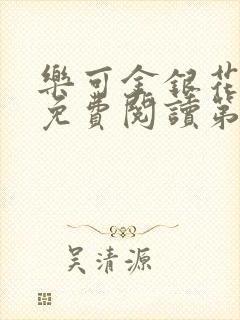 樂可金銀花
免費閱讀第
吳清源